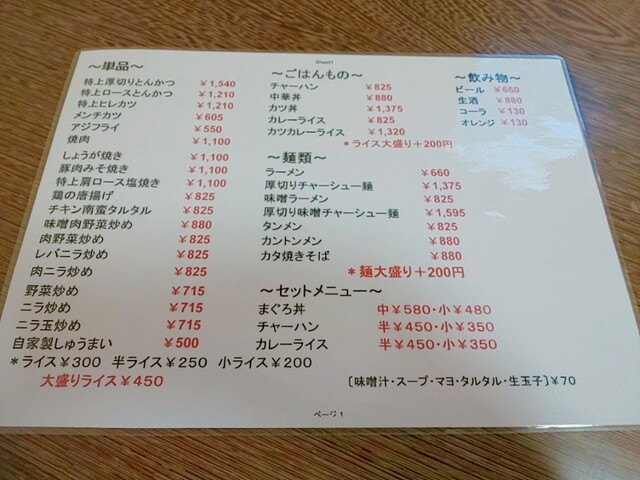 Sheet1
～単品～
特上厚切りとんかつ ￥1,540
特上ロースとんかつ ￥1,210
特上ヒレカツ ￥1,210
メンチカツ ￥605
アジフライ ￥550
焼肉 ￥1,100
しょうが焼き ￥1,100
豚肉みそ焼き ￥1,100
特上肩ロース塩焼き ￥1,100
鶏の唐揚げ ￥825
チキン南蛮タルタル ￥825
味噌肉野菜炒め ￥880
肉野菜炒め ￥825
レバニラ炒め ￥825
肉ニラ炒め ￥825
野菜炒め ￥715
ニラ炒め ￥715
ニラ玉炒め ￥715
自家製しゅうまい ￥500
＊ライス￥300 半ライス￥250 小ライス￥200
大盛りライス￥450
～ごはんもの～
チャーハン ￥825
中華丼 ￥880
カツ丼 ￥1,375
カレーライス ￥825
カツカレーライス ￥1,320
＊ライス大盛り＋200円
～麺類～
ラーメン ￥660
厚切りチャーシュー麺 ￥1,375
味噌ラーメン ￥825
厚切り味噌チャーシュー麺 ￥1,595
タンメン ￥825
カントンメン ￥880
カタ焼きそば ￥880
＊麺大盛り＋200円
～セットメニュー～
まぐろ丼 中￥580・小￥480
チャーハン 半￥450・小￥350
カレーライス 半￥450・小￥350
〔味噌汁・スープ・マヨ・タルタル・生玉子〕￥70
～飲み物～
ビール ￥660
生酒 ￥880
コーラ ￥130
オレンジ ￥130
ページ 1